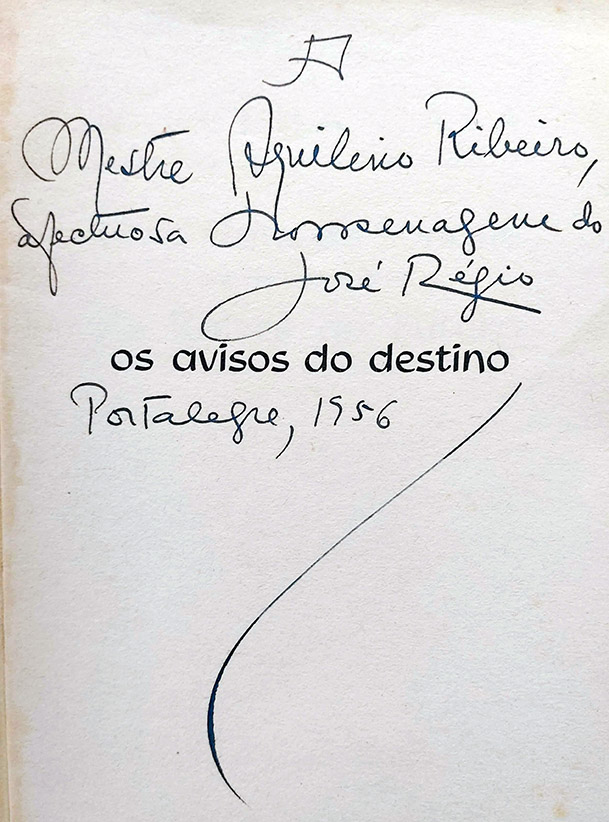 A
Mestre Aquilino Ribeiro,
afectuosa Homenagem do
José Régio
os avisos do destino
Portalegre, 1956